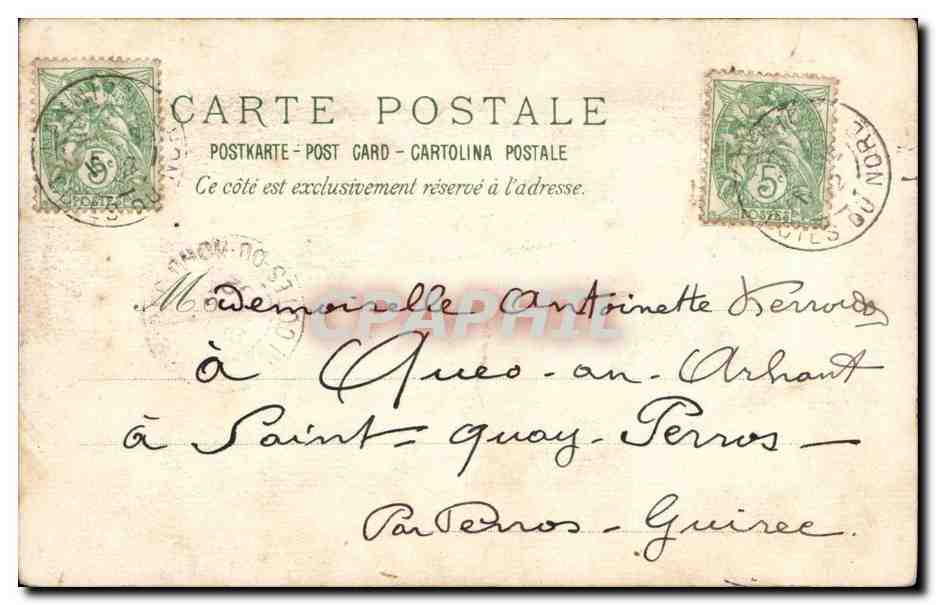 CARTE POSTALE
POSTKARTE - POST CARD - CARTOLINA POSTALE
Ce côté est exclusivement réservé à l'adresse.
5c
POSTES
5c
POSTES
COTES DU NORD
Mademoiselle Antoinette
CPAPHIL
à an - Arhant
à Saint = Quay - Perros -
Par Perros - Guirec.